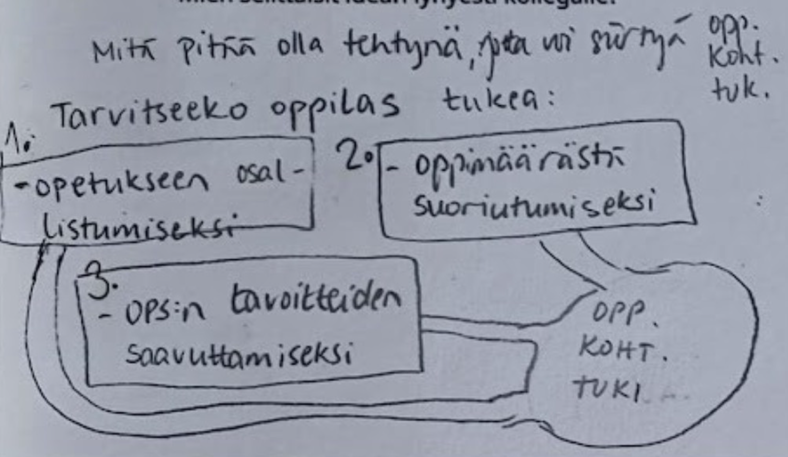 Miten selittäisit idean lyhyesti kollegalle?
Mitä pitää olla tehtynä, jotta voi siirtyä opp.
koht.
tuk.
Tarvitseeko oppilas tukea:
1.
- opetukseen osal-
listumiseksi
2.
- oppimäärästä
suoriutumiseksi
3.
- OPS:n tavoitteiden
saavuttamiseksi
OPP.
KOHT.
TUKI